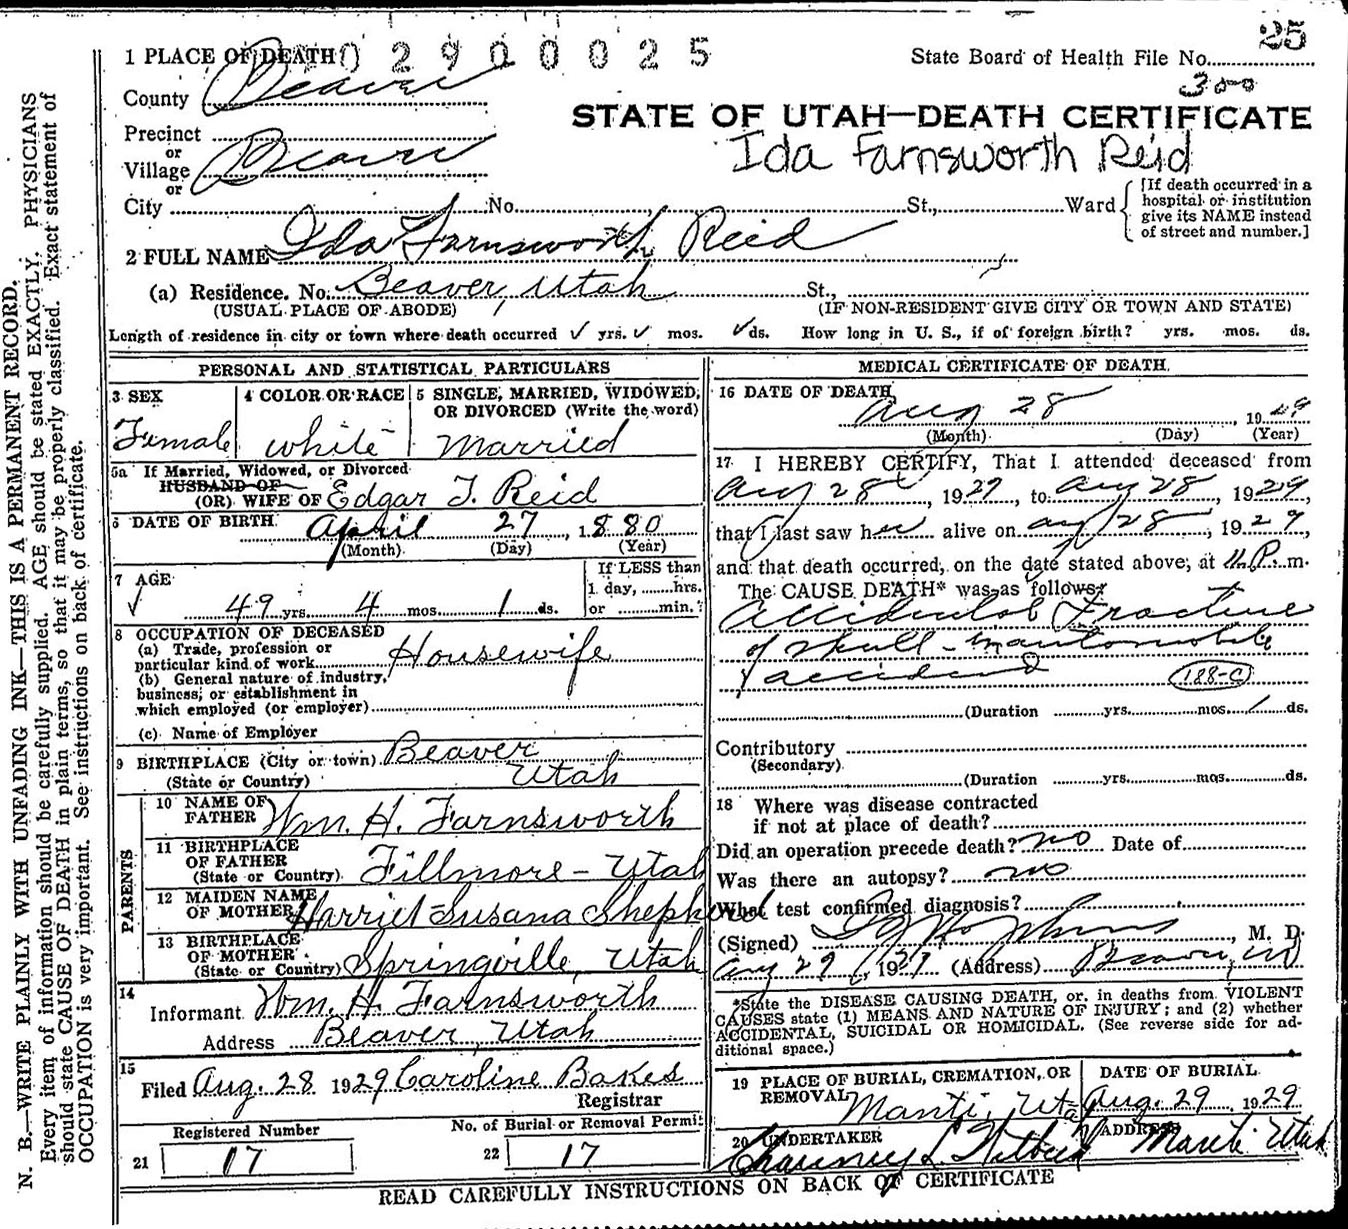 25
1 PLACE OF DEATH
02900025
State Board of Health File No.
300
County Beaver
STATE OF UTAH—DEATH CERTIFICATE
Ida Farnsworth Reid
Precinct
or
Village Beaver
or
City No. St., Ward
[If death occurred in a
hospital or institution
give its NAME instead
of street and number.]
2 FULL NAME Ida Farnsworth Reid
(a) Residence. No. Beaver, Utah St.,
(USUAL PLACE OF ABODE) (IF NON-RESIDENT GIVE CITY OR TOWN AND STATE)
Length of residence in city or town where death occurred ✓ yrs. ✓ mos. ✓ ds. How long in U. S., if of foreign birth? yrs. mos. ds.
PERSONAL AND STATISTICAL PARTICULARS
3 SEX
Female
4 COLOR OR RACE
white
5 SINGLE, MARRIED, WIDOWED,
OR DIVORCED (Write the word)
Married
5a If Married, Widowed, or Divorced
HUSBAND OF
(OR) WIFE OF Edgar T. Reid
6 DATE OF BIRTH April 27, 1880
(Month) (Day) (Year)
7 AGE
✓ 49 yrs. 4 mos. 1 ds.
If LESS than
1 day, ......hrs.
or ......min.?
8 OCCUPATION OF DECEASED
(a) Trade, profession or
particular kind of work Housewife
(b) General nature of industry,
business; or establishment in
which employed (or employer)
(c) Name of Employer
9 BIRTHPLACE (City or town) Beaver
(State or Country) Utah
PARENTS
10 NAME OF
FATHER Wm. H. Farnsworth
11 BIRTHPLACE
OF FATHER
(State or Country) Fillmore - Utah
12 MAIDEN NAME
OF MOTHER Harriet Susana Shepherd
13 BIRTHPLACE
OF MOTHER
(State or Country) Springville, Utah
14
Informant Wm. H. Farnsworth
Address Beaver, Utah
15
Filed Aug. 28 1929 Caroline Bakes
Registrar
Registered Number
21 17
No. of Burial or Removal Permit
22 17
MEDICAL CERTIFICATE OF DEATH
16 DATE OF DEATH
Aug 28, 1929
(Month) (Day) (Year)
17 I HEREBY CERTIFY, That I attended deceased from
Aug 28, 1929, to Aug 28, 1929,
that I last saw her alive on Aug 28, 1929
and that death occurred, on the date stated above, at 11 P. m.
The CAUSE DEATH* was as follows:
Accidental Fracture
of skull - in automobile
accident 188-C
(Duration yrs. mos. 1 ds.
Contributory
(Secondary)
(Duration yrs. mos. ds.
18 Where was disease contracted
if not at place of death?
Did an operation precede death? no Date of
Was there an autopsy? no
What test confirmed diagnosis?
(Signed) , M. D.
Aug 29, 1929 (Address) Beaver,
*State the DISEASE CAUSING DEATH, or, in deaths from VIOLENT
CAUSES state (1) MEANS AND NATURE OF INJURY; and (2) whether
ACCIDENTAL, SUICIDAL OR HOMICIDAL. (See reverse side for ad-
ditional space.)
19 PLACE OF BURIAL, CREMATION, OR
REMOVAL
Manti, Utah
DATE OF BURIAL
Aug. 29 1929
20 UNDERTAKER
Chauncy L.
ADDRESS
Manti Utah
READ CAREFULLY INSTRUCTIONS ON BACK OF CERTIFICATE
N. B.—WRITE PLAINLY WITH UNFADING INK—THIS IS A PERMANENT RECORD.
Every item of information should be carefully supplied. AGE should be stated EXACTLY. PHYSICIANS
should state CAUSE OF DEATH in plain terms, so that it may be properly classified. Exact statement of
OCCUPATION is very important. See instructions on back of certificate.